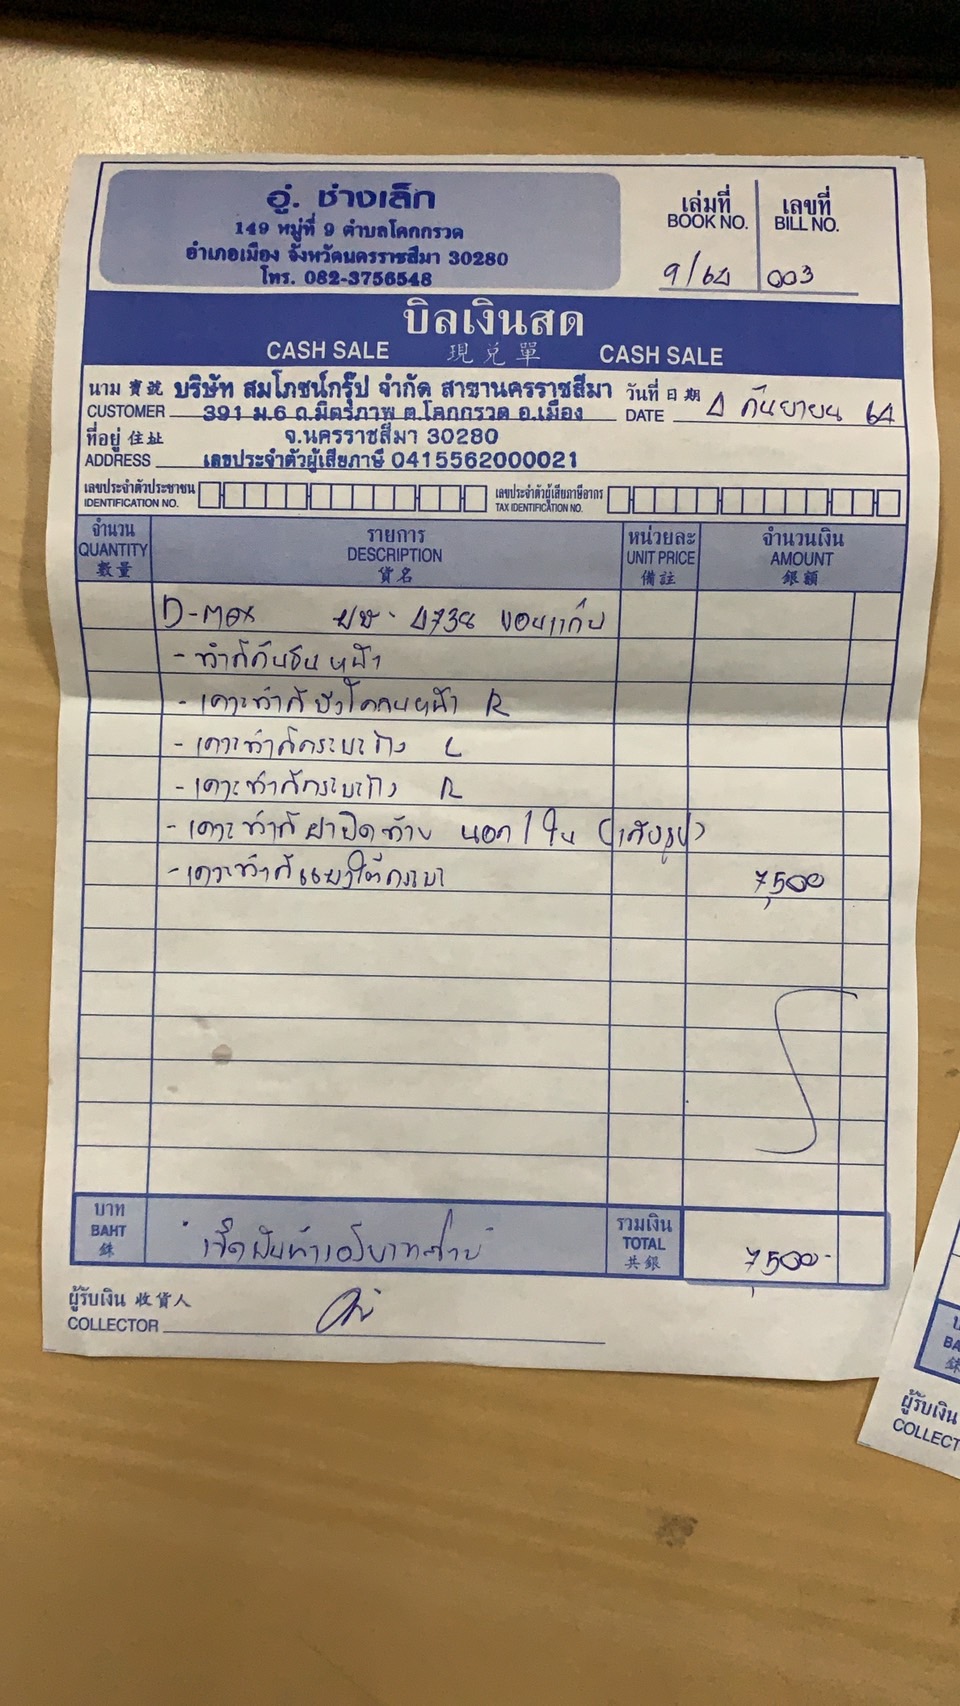 อู่. ช่างเล็ก
149 หมู่ที่ 9 ตำบลโคกกรวด
อำเภอเมือง จังหวัดนครราชสีมา 30280
โทร. 082-3756548
เล่มที่ เลขที่
BOOK NO. BILL NO.
9/64 003
บิลเงินสด
CASH SALE 現兌單 CASH SALE
นาม 寶號 บริษัท สมโภชน์กรุ๊ป จำกัด สาขานครราชสีมา วันที่ 日期
CUSTOMER 391 ม.6 ถ.มิตรภาพ ต.โคกกรวด อ.เมือง DATE 4 กันยายน 64
ที่อยู่ 住址 จ.นครราชสีมา 30280
ADDRESS เลขประจำตัวผู้เสียภาษี 0415562000021
เลขประจำตัวประชาชน เลขประจำตัวผู้เสียภาษีอากร
IDENTIFICATION NO. TAX IDENTIFICATION NO.
จำนวน รายการ หน่วยละ จำนวนเงิน
QUANTITY DESCRIPTION UNIT PRICE AMOUNT
數量 貨名 備註 銀額
D-max ขอนแก่น
- ทำสีกันชนหน้า
- เคาะทำสีบังโคลนหน้า R
- เคาะทำสีกระบะข้าง L
- เคาะทำสีกระบะข้าง R
- เคาะทำสีฝาปิดท้าย นอก 1 ใบ
- เคาะทำสี 7,500
บาท รวมเงิน
BAHT เจ็ดพันห้าร้อยบาทถ้วน TOTAL 7,500-
銖 共銀
ผู้รับเงิน 收貨人
COLLECTOR
ผู้รับเงิน
COLLECT